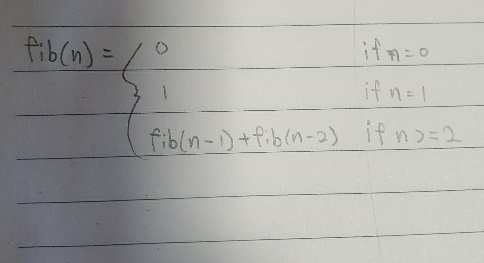 fib(n) = { 0 if n=0
1 if n=1
fib(n-1)+fib(n-2) if n>=2